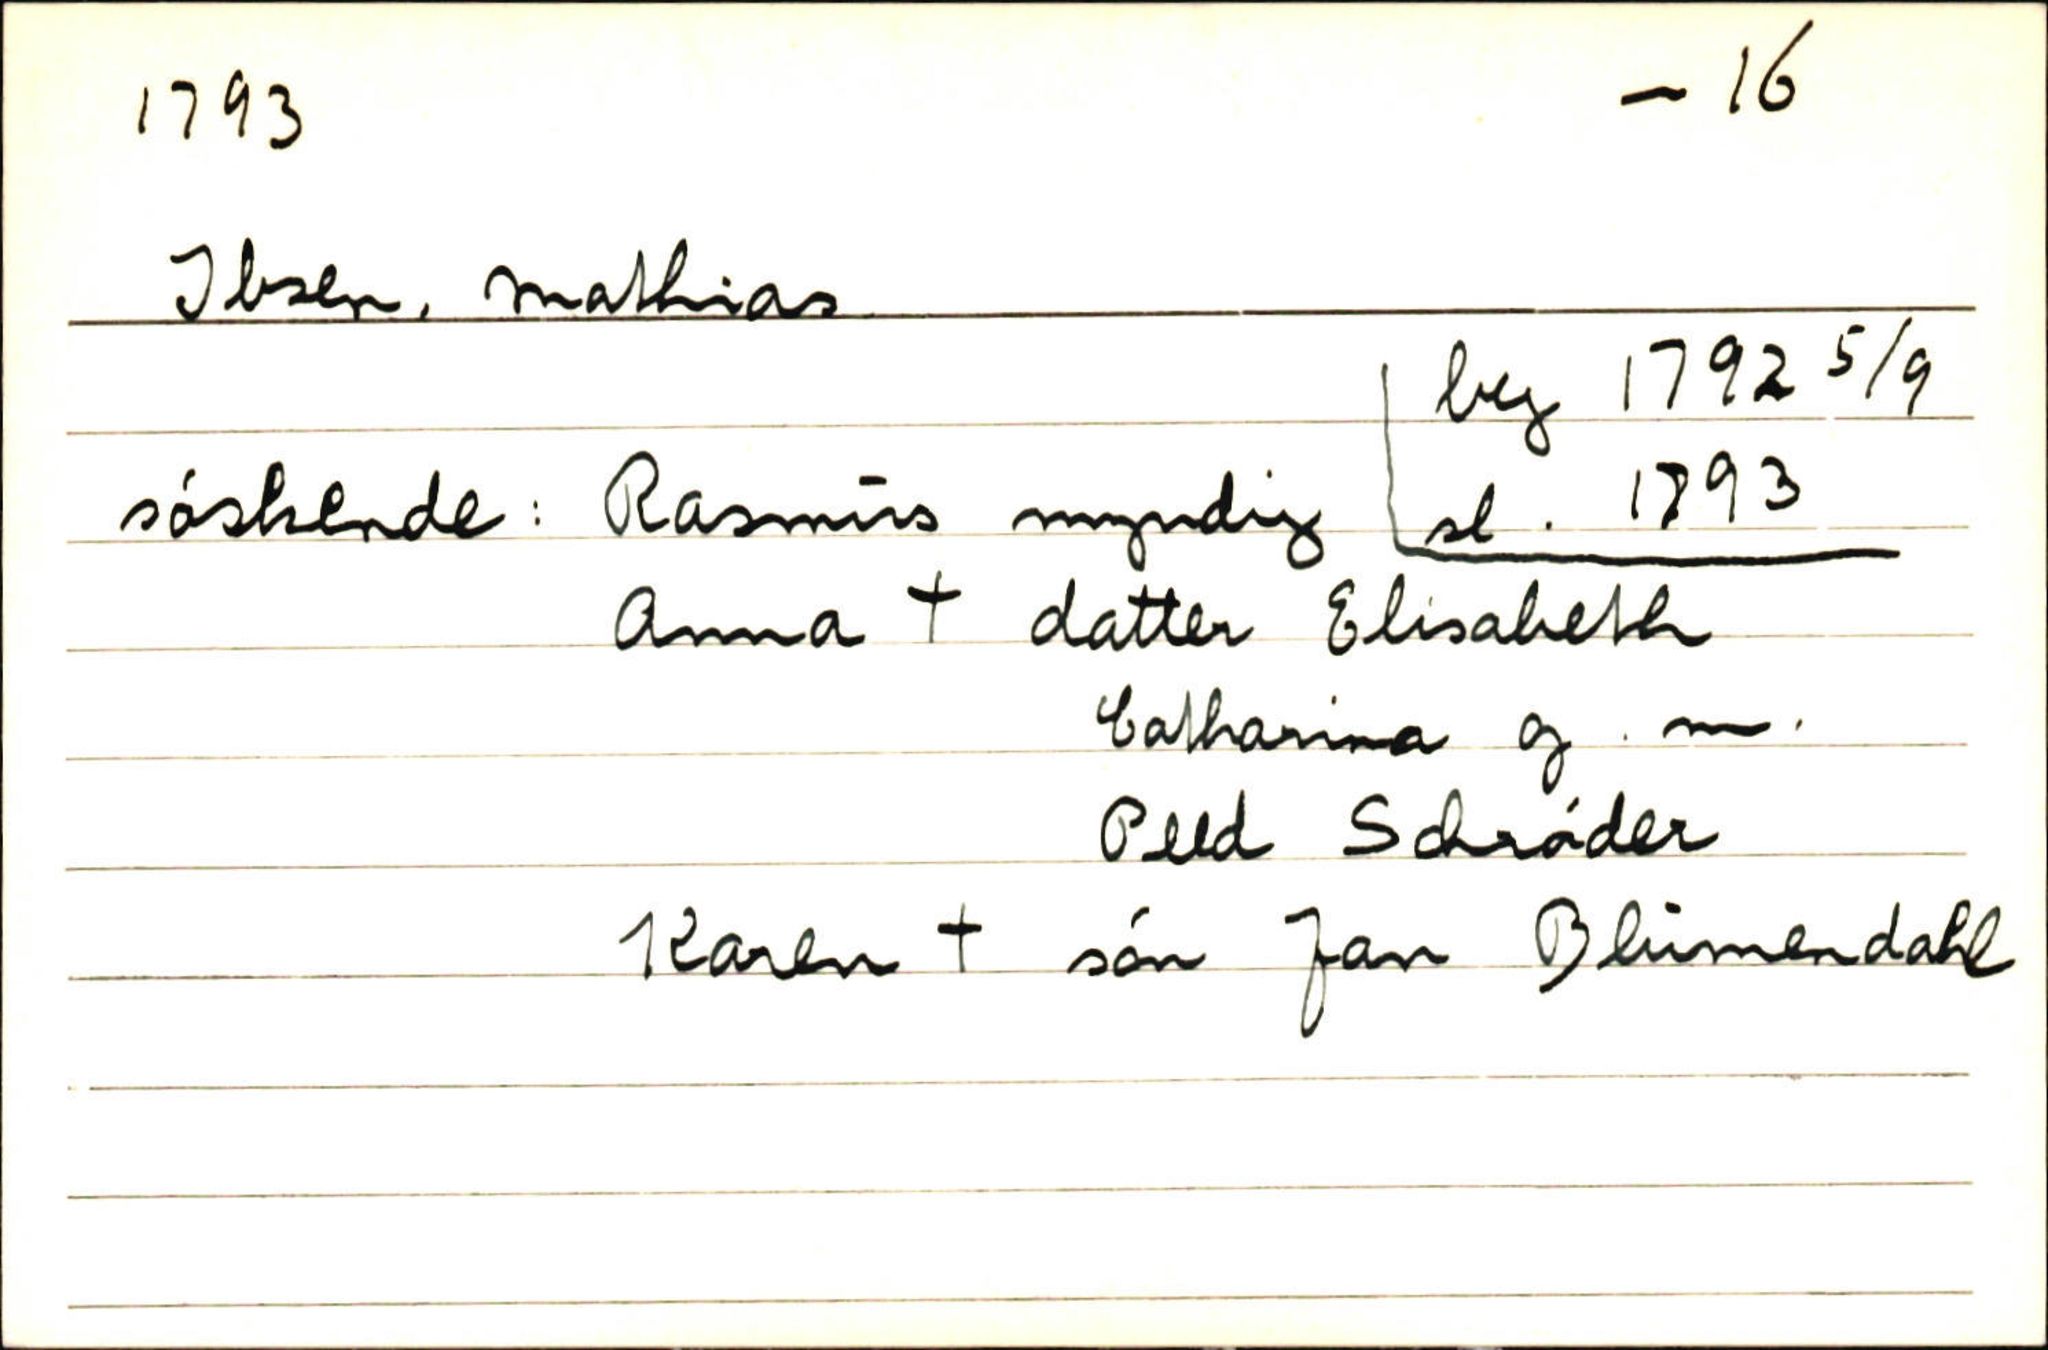 1793 – 16
Ibsen, Mathias
beg 1792 5/9
søskende: Rasmus myndig sl. 1793
Anna † datter Elisabeth
Catharina g. m.
Peed Schrøder
Karen † søn Jan Blumendahl